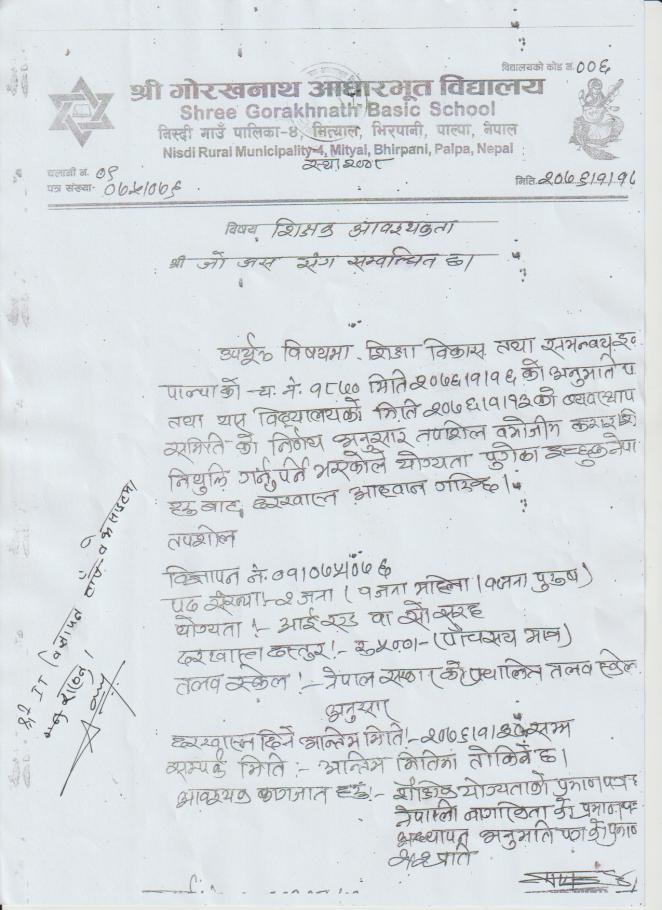 विद्यालयको कोड नं. ००६
श्री गोरखनाथ आधारभूत विद्यालय
Shree Gorakhnath Basic School
निस्दी गाउँ पालिका-४, मित्याल, भिरपानी, पाल्पा, नेपाल
Nisdi Rural Municipality-4, Mityal, Bhirpani, Palpa, Nepal
स्था २००८
चलानी नं. ०९
पत्र संख्या- ०७५/०७६
मिति. २०७६/१/१८
विषय शिक्षक आवश्यकता
श्री जो जस संग सम्बन्धित छ।
उपर्युक्त विषयमा शिक्षा विकास तथा समन्वय इ
पाल्पाको च. नं. ९८७० मिति २०७६/१/१६ को अनुमति प
तथा यस विद्यालयको मिति २०७६/१/१३ को व्यवस्थाप
समिति को निर्णय अनुसार तपशिल बमोजीम करार
नियुक्ति गर्नुपर्ने भएकोले योग्यता पुगेका इच्छुक नेपा
हरु बाट दरखास्त आह्वान गरिन्छ।
तपशील
विज्ञापन नं. ०१/०७५/०७६
पद संख्या:- २ जना (१ जना महिला, १ जना पुरुष)
योग्यता:- आई एड वा सो सरह
दरखास्त दस्तुर:- रु ५००।- (पाँचसय मात्र)
तलब स्केल:- नेपाल सरकारको प्रचालित तलब स्केल
अनुसार
दरखास्त दिने अन्तिम मिति:- २०७६/१/३० सम्म
सम्पर्क मिति:- अन्तिम मितिमा तोकिने छ।
आवश्यक कागजात हरु:- शैक्षिक योग्यताको प्रमाणपत्र
नेपाली नागरिकता को प्रमाणप
अध्यापन अनुमति पत्र को प्रमाण
श्री IT विज्ञापन